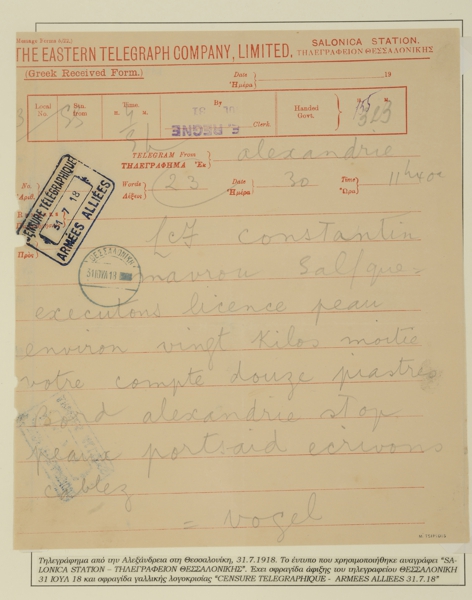 THE EASTERN TELEGRAPH COMPANY, LIMITED.
SALONICA STATION.
ΤΗΛΕΓΡΑΦΕΙΟΝ ΘΕΣΣΑΛΟΝΙΚΗΣ
(Greek Received Form.)
Date
Ἡμέρα
19
Local No.
Stn. from
Time.
By
Clerk.
Handed Govt.
E. REGNE
TELEGRAM From
ΤΗΛΕΓΡΑΦΗΜΑ Ἐκ
alexandrie
No.
Words
Λέξεις
23
Date
Ἡμέρα
30
Time
Ὥρα
CENSURE TELEGRAPHIQUE
31 7 18
ARMÉES ALLIÉES
Πρὸς
constantin
mavrou Sal/que
executons licence peau
environ vingt kilos moitie
votre compte douze piastres
Bord alexandrie stop
peaux port-said ecrivons
cablez
= vogel
Τηλεγράφημα από την Αλεξάνδρεια στη Θεσσαλονίκη, 31.7.1918. Το έντυπο που χρησιμοποιήθηκε αναγράφει "SA-
LONICA STATION – ΤΗΛΕΓΡΑΦΕΙΟΝ ΘΕΣΣΑΛΟΝΙΚΗΣ". Έχει σφραγίδα άφιξης του τηλεγραφείου ΘΕΣΣΑΛΟΝΙΚΗ
31 ΙΟΥΛ 18 και σφραγίδα γαλλικής λογοκρισίας "CENSURE TELEGRAPHIQUE - ARMEES ALLIEES 31.7.18"